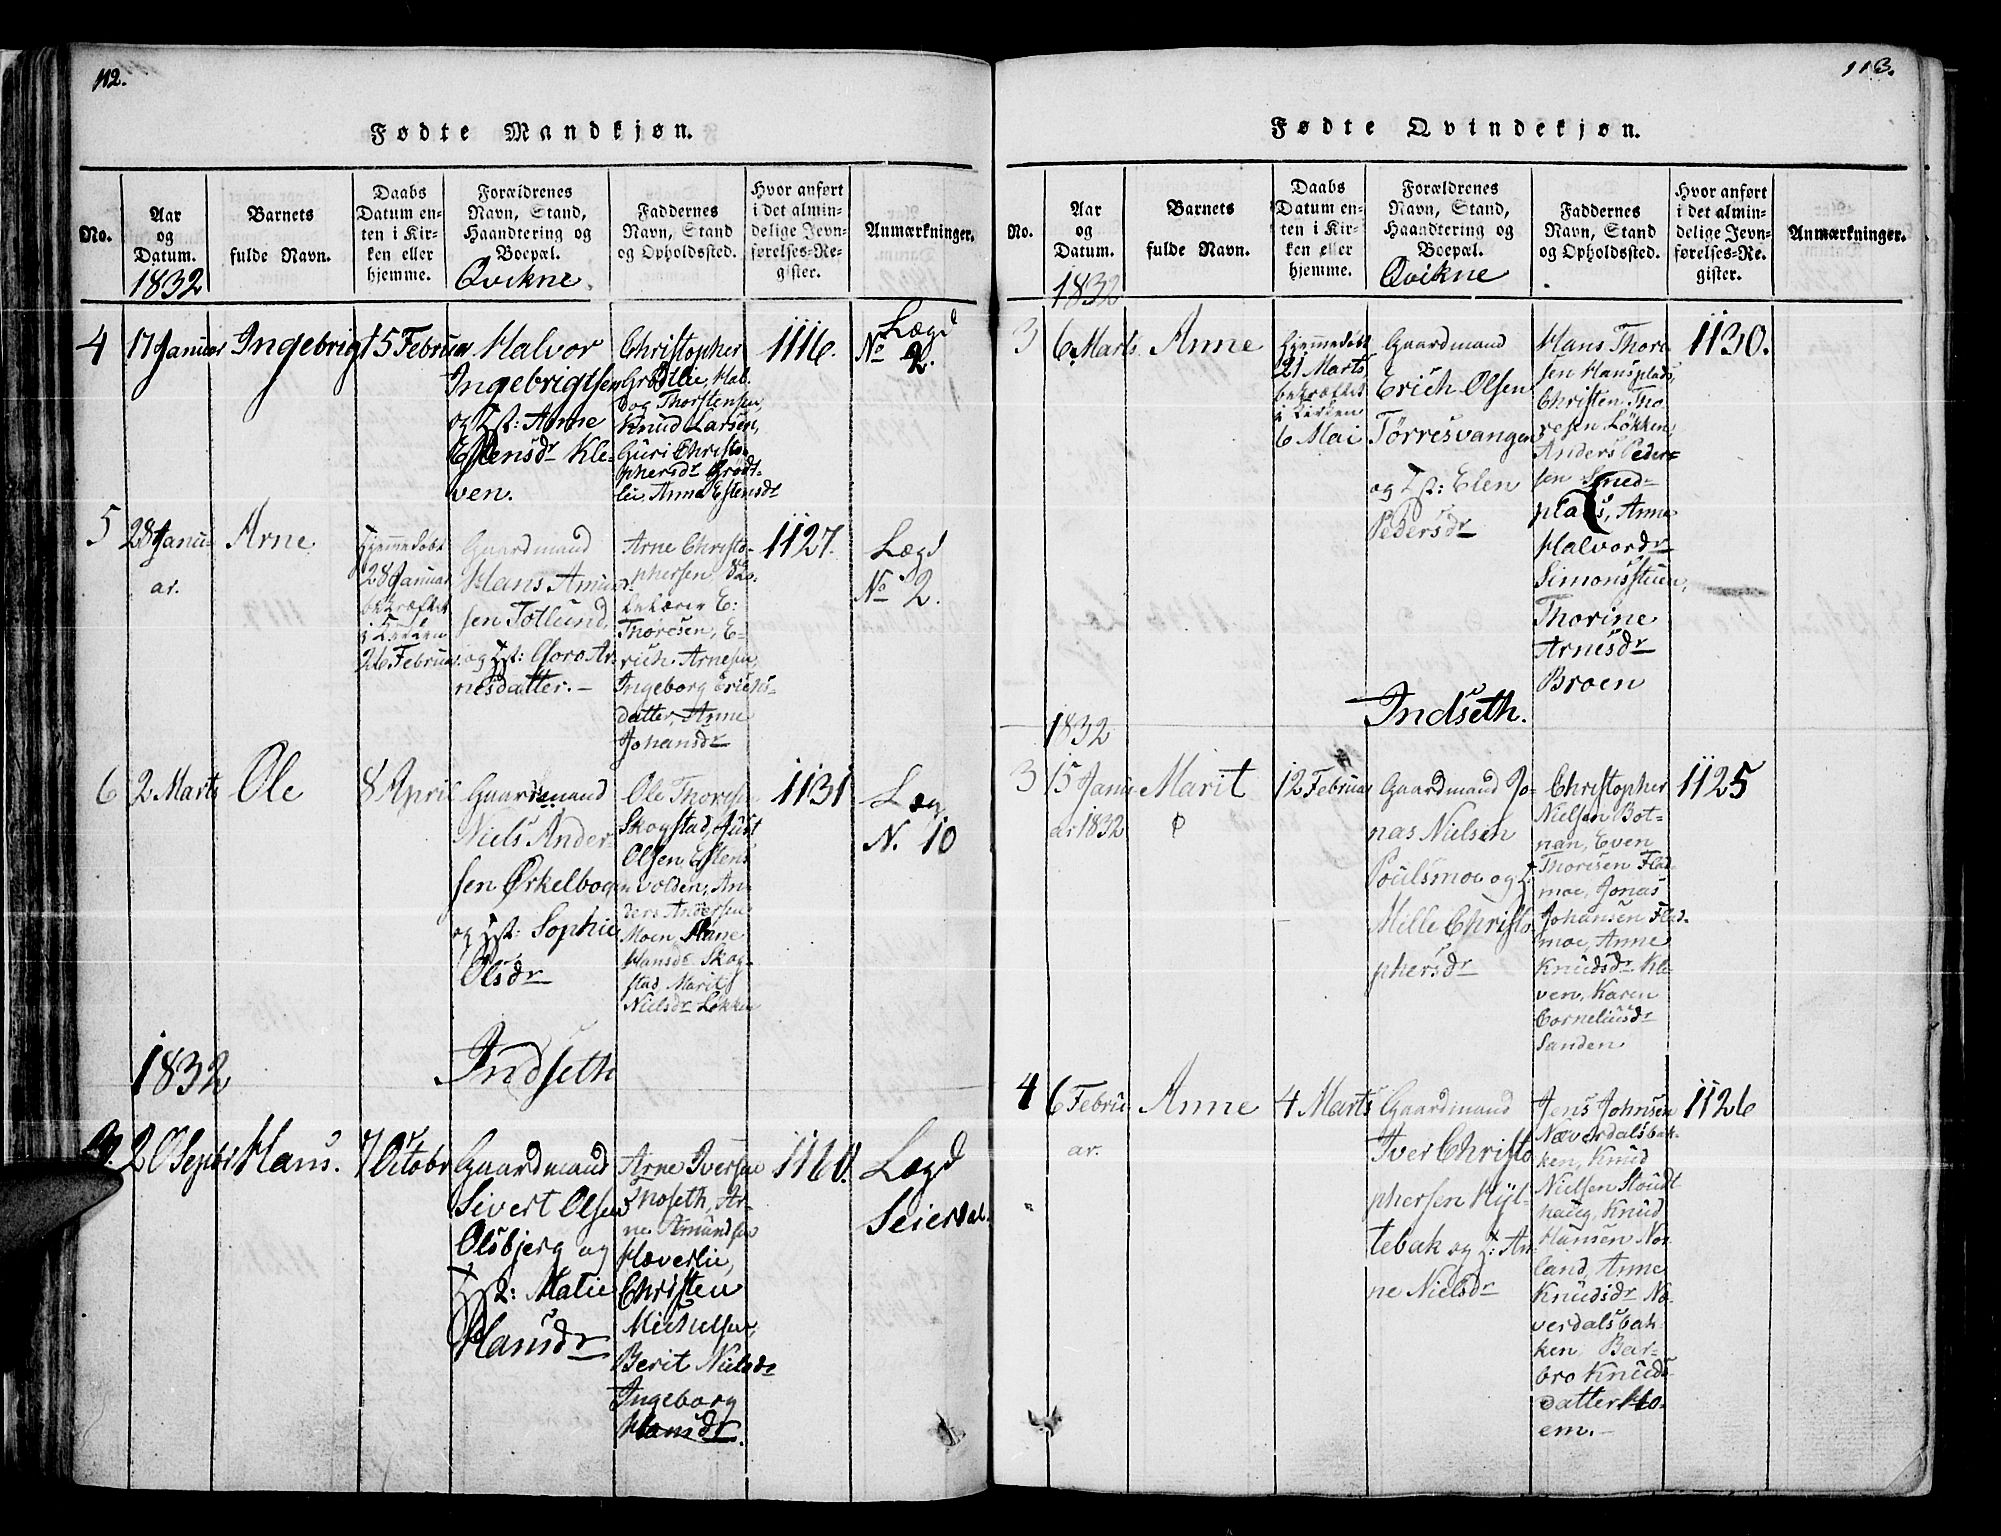 112.
Fødte Mandkjøn.
No.
Aar
og
Datum.
1832
Barnets
fulde Navn.
Daabs
Datum en-
ten i Kir-
ken eller
hjemme.
Forældrenes
Navn, Stand,
Haandtering og
Boepæl.
Qvikne
Faddernes
Navn, Stand
og Opholdssted.
Hvor anført
i det almin-
delige Jevn-
førelses-Re-
gister.
Anmærkninger.
4
17 Januar
Ingebrigt
5 Februar
Halvor
Ingebrigtsen
og Hst: Anne
Estensdr Kle-
ven.
Christopher
Grødtlie, Hal-
dog Thorstensen,
Knud Larsen,
Guri Christo-
phersdr Grødt-
lie, Anne Estensdr
1116.
Lægd
No 2.
5
28 Janu-
ar.
Arne
Hjemmedøbt
28 Januar
bekræftet
i Kirken
26 Februar
Gaardmand
Hans Amund-
sen Totlund
og Hst: Goro Ar-
nesdatter. -
Arne Christo-
phersen,
E:
Thoresen, E-
rich Arnesen,
Ingeborg Erichs-
datter, Anne
Johansdr
1127.
Lægd
No 2.
6
2 Marts
Ole
8 April
Gaardmand
Niels Ander-
sen Ørkelbogen
og Hst: Sophie
Olsdr
Ole Thoresen
Skogstad, Just
Olsen Estens-
volden, An-
ders Andersen
Moen, Hane
Hansdr Skog-
stad, Marit
Nielsdr Løkken
1131
Læg
N. 10
1832
Indseth
9.
20 Septbr
Hans.
7 Octobr
Gaardmand
Sivert Olsen
Olsbjerg og
Hst: Malie
Hansdr
Arne Iversen
Moseth, Ar-
ne Amundsen
Haverlie,
Christen
Michelsen,
Berit Nielsdr
Ingeborg
Hansdr.
1160.
Lægd
Seierdal.
113.
Fødte Qvindekjøn.
No.
Aar
og
Datum.
1832
Barnets
fulde Navn.
Daabs
Datum en-
ten i Kir-
ken eller
hjemme.
Forældrenes
Navn, Stand,
Haandtering og
Boepæl.
Qvikne
Faddernes
Navn, Stand
og Opholdssted.
Hvor anført
i det almin-
delige Jevn-
førelses-Re-
gister.
Anmærkninger.
3
6 Marts
Anne
Hjemmedøbt
21 Marts
bekræftet
i Kirken
6 Mai
Gaardmand
Erich Olsen
Tørresvangen
og Hst: Elen
Pedersdr
Hans Thore-
sen Hansplads,
Christen Tho-
resen Løkken,
Anders Peder-
sen Smed-
plads, Anne
Halvordr
Simonsstuen,
Thorine
Arnesdr
Broen
1130.
1832
Indseth.
3
15 Janu-
ar 1832
Marit
12 Februar
Gaardmand Jo-
nas Nielsen
Poulsmoe og H:
Mille Christo-
phersdr
Christopher
Nielsen Bot-
nan, Even
Thoresen Flad-
moe, Jonas
Johansen Flad-
moe, Anne
Knudsdr Kle-
ven, Karen
Corneliusdr
Sanden
1125
4
6 Febru-
ar.
Anne
4 Marts
Gaardmand
Iver Christo-
phersen Hyl-
tebak og H: An-
ne Nielsdr
Jens Johnsen
Næverdalsbak-
ken, Knud
Nielsen Stoudt-
haug, Knud
Hansen Nor-
land, Anne
Knudsdr Næ-
verdalsbak-
ken, Bar-
bro Knuds-
datter Ho-
em. -
1126